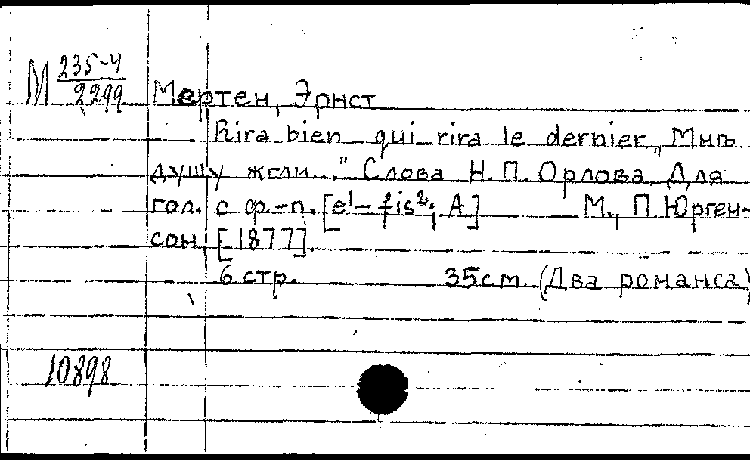 М 235-4
2299
Мертен, Эрнст
Rira bien qui rira le dernier „Мнѣ
душу жгли..." Слова Н. П. Орлова Для
гол. с ф.-п. [e¹- fis²; A] М., П. Юрген-
сон, [1877].
6 стр. 35см. (Два романса)
10898